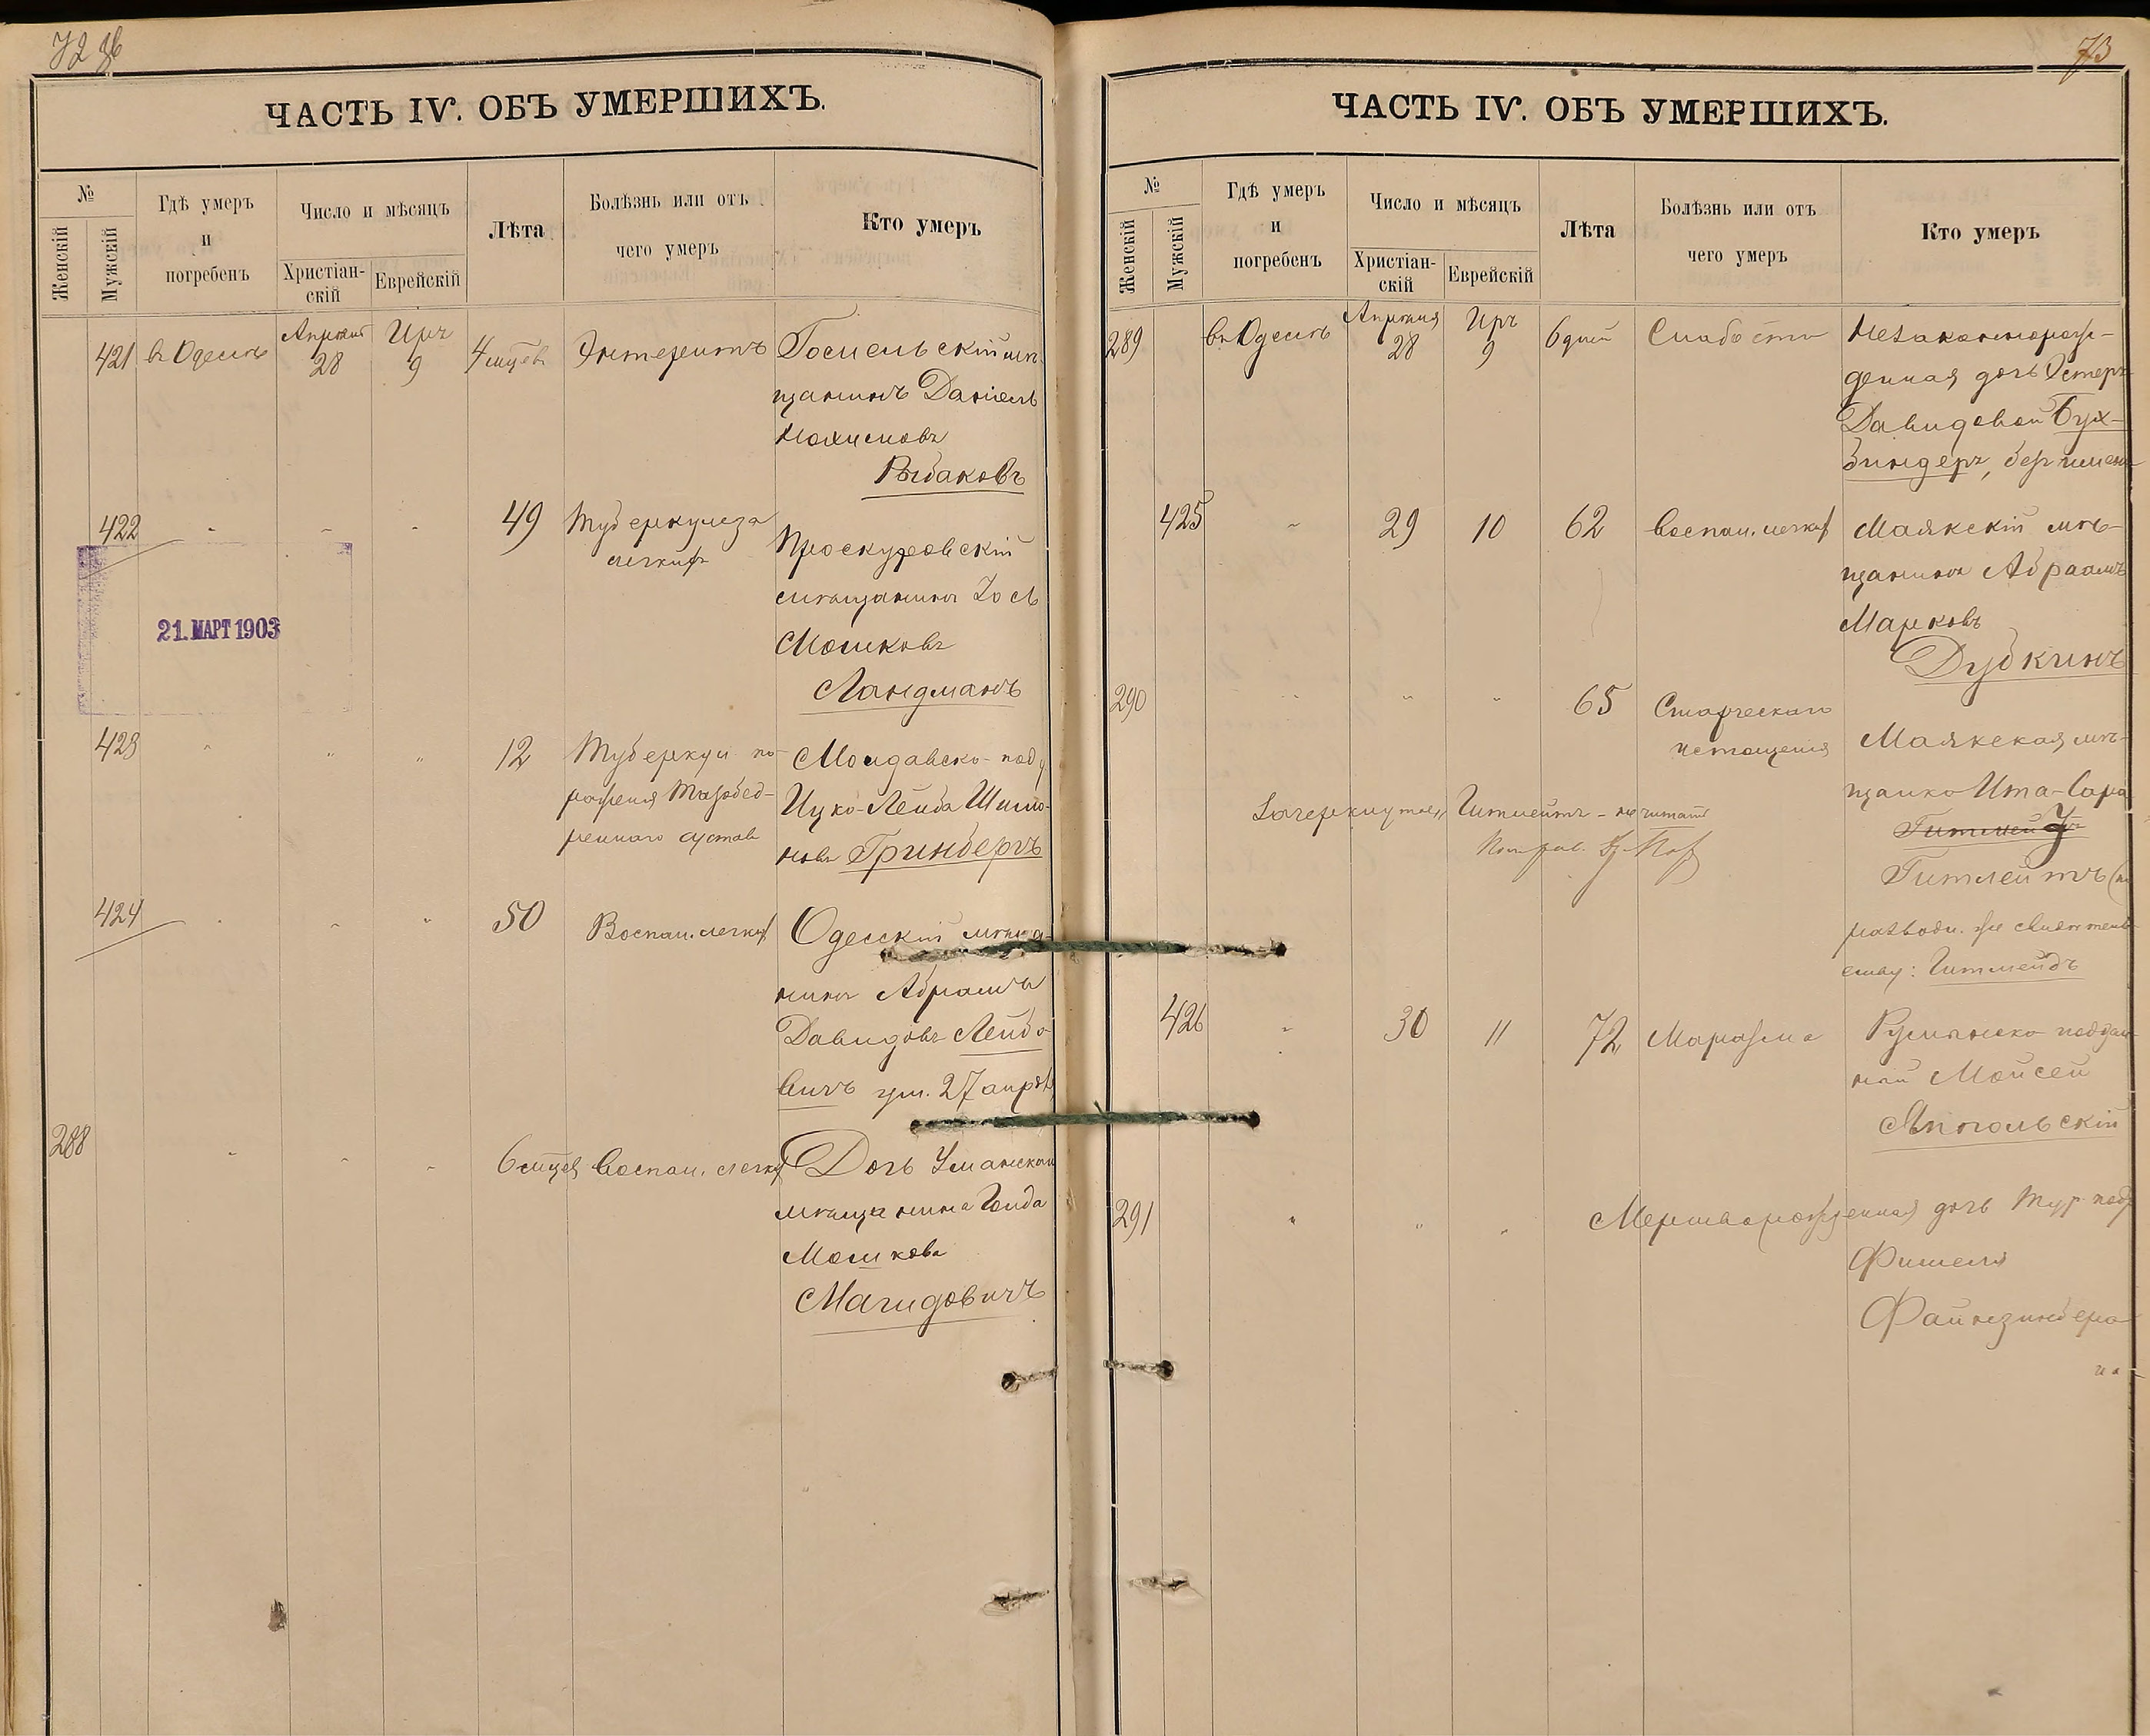 72 об
ЧАСТЬ IV. ОБЪ УМЕРШИХЪ.
№
Женскій
Мужскій
Гдѣ умеръ
и
погребенъ
Число и мѣсяцъ
Христіан-
скій
Еврейскій
Лѣта
Болѣзнь или отъ
чего умеръ
Кто умеръ
421 въ Одессѣ Апрѣля 28 Иръ 9 4 мцев Энтеритъ Гомельскій мѣ-
щанинъ Даніелъ
Нохимовъ
Рыбаковъ
422 " " " 49 Туберкулеза
легкихъ
Проскуровскій
мѣщанинъ Іось
Мошковъ
Ландманъ
21. МАРТ 1903
423 " " " 12 Туберкул по-
раженія Тазобед-
реннаго сустава
Молдавско-под.
Ицко-Лейба Шимо-
новъ Гринбергъ
424 " " " 50 Воспал. легких
Одесскій мѣща-
нинъ Абрамъ
Давидовъ Лейбо-
вичъ ум. 27 апрѣля
288 " " " 6 мцев Воспал. легких
Дочь Уманскаго
мѣщанина Голда
Мошкова
Магидовичъ
73
ЧАСТЬ IV. ОБЪ УМЕРШИХЪ.
№
Женскій
Мужскій
Гдѣ умеръ
и
погребенъ
Число и мѣсяцъ
Христіан-
скій
Еврейскій
Лѣта
Болѣзнь или отъ
чего умеръ
Кто умеръ
289 въ Одессѣ Апрѣля 28 Иръ 9 6 дней Слабости Незаконнорож-
денная дочь Эстеръ
Давидовой Бух-
биндеръ, безъ имени
425 " 29 10 62 Воспал. легких Маякскій мѣ-
щанинъ Абрамъ
Марковъ
Дубкинъ
290 " " " 65 Старческаго
истощенія
Маякская мѣ-
щанка Ита-Сара
Гитлейтъ (по
разводн. же свидѣтель-
ству: Гитлейдъ
Зачеркнутое "Гитлейтъ" - не читать
426 " 30 11 72 Маразма Румынско-поддан-
ный Мойсей
Ямпольскій
291 " " " Мертворожденная дочь Тур. подд.
Фишеля
Файнзинберга